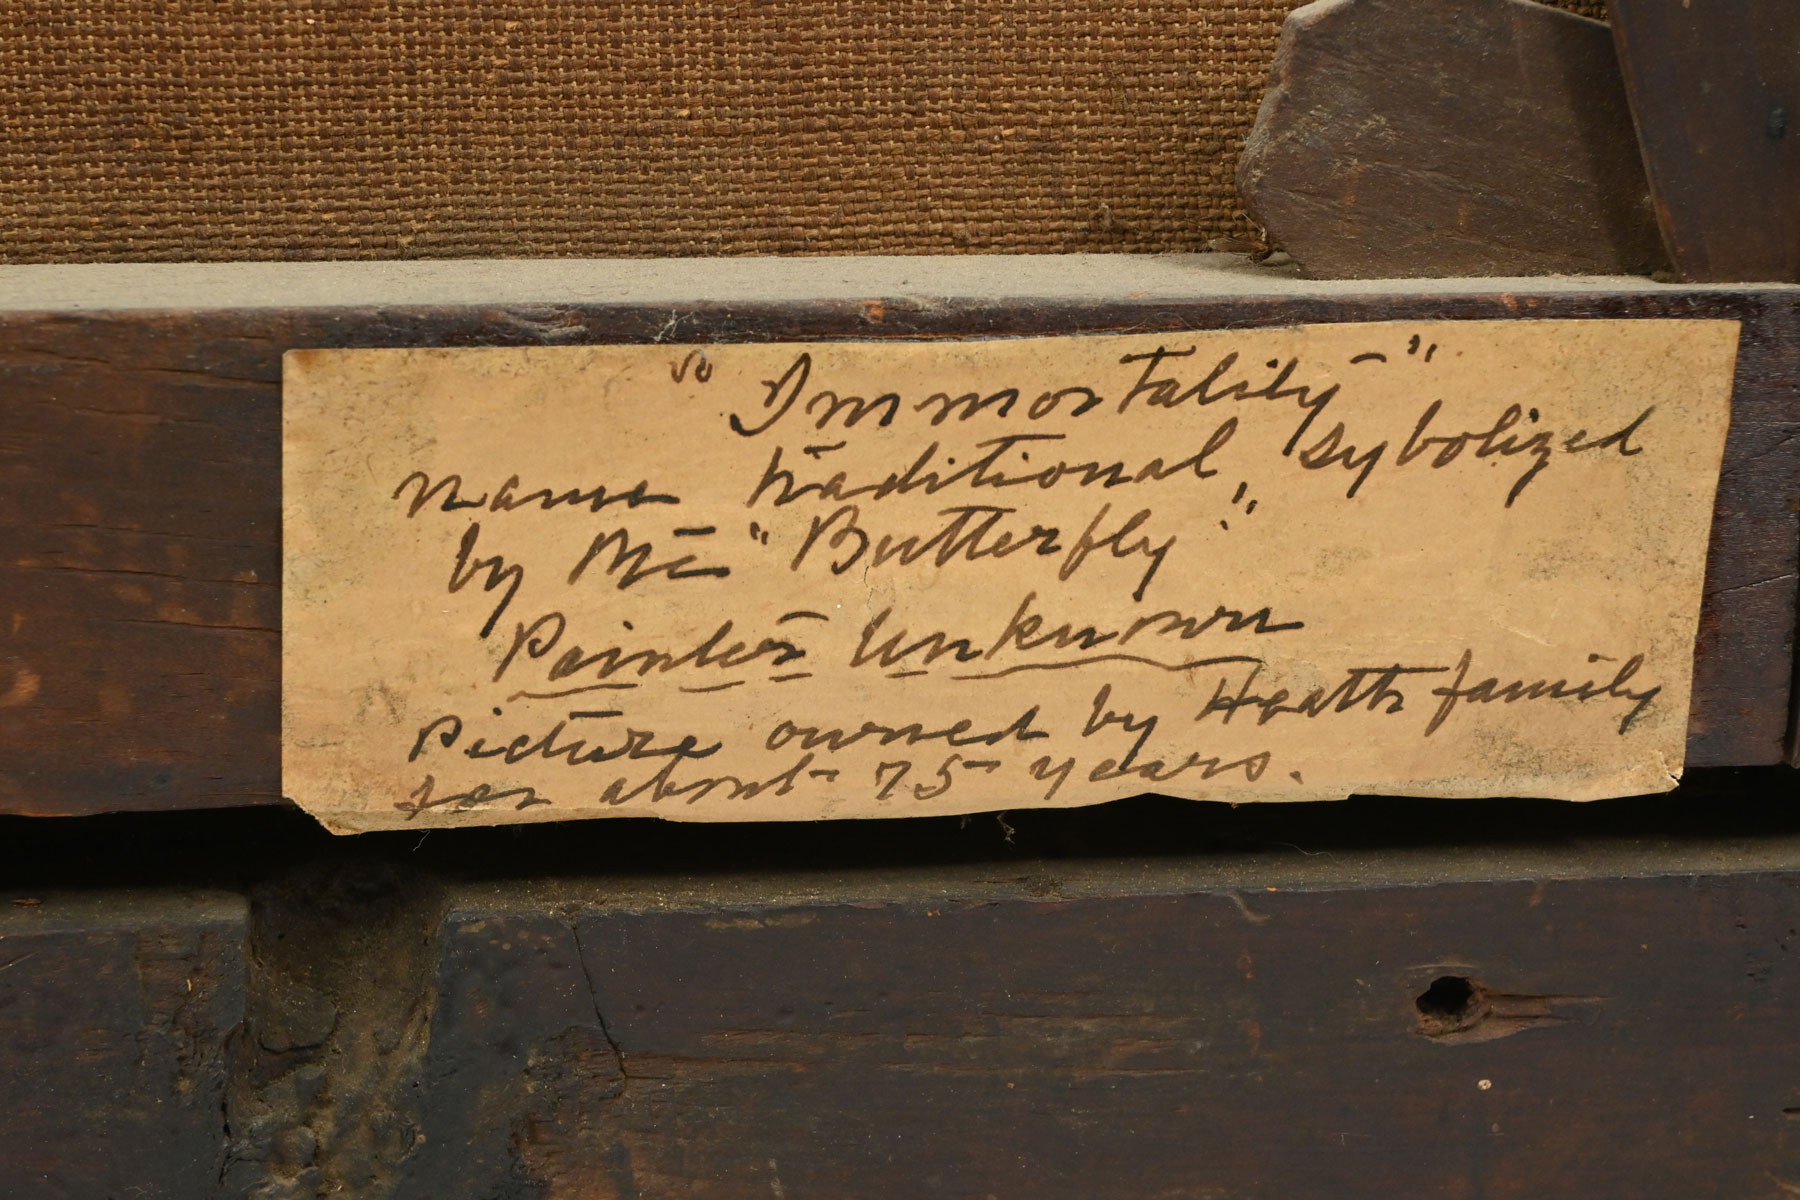 "Immortality"
name traditional, sybolized
by the "Butterfly".
Painter Unknown
Picture owned by Heath family
for about 75 years.